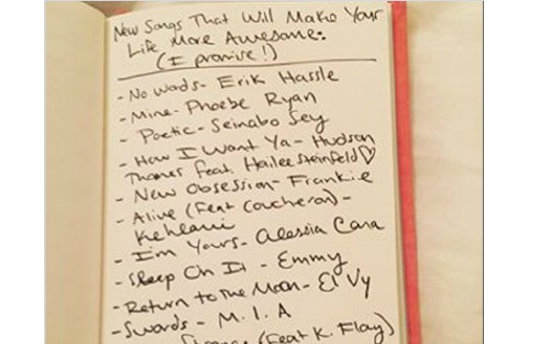 New Songs That Will Make Your
Life More Awesome:
(I promise!)
- No Words - Erik Hassle
- Mine - Phoebe Ryan
- Poetic - Seinabo Sey
- How I Want Ya - Hudson
Thames feat. Hailee Steinfeld♡
- New Obsession - Frankie
- Alive (Feat Coucheron) -
Kehlani
- I'm Yours - Alessia Cara
- Sleep On It - Emmy
- Return to the Moon - El Vy
- Swords - M.I.A
(Feat K. Flay)